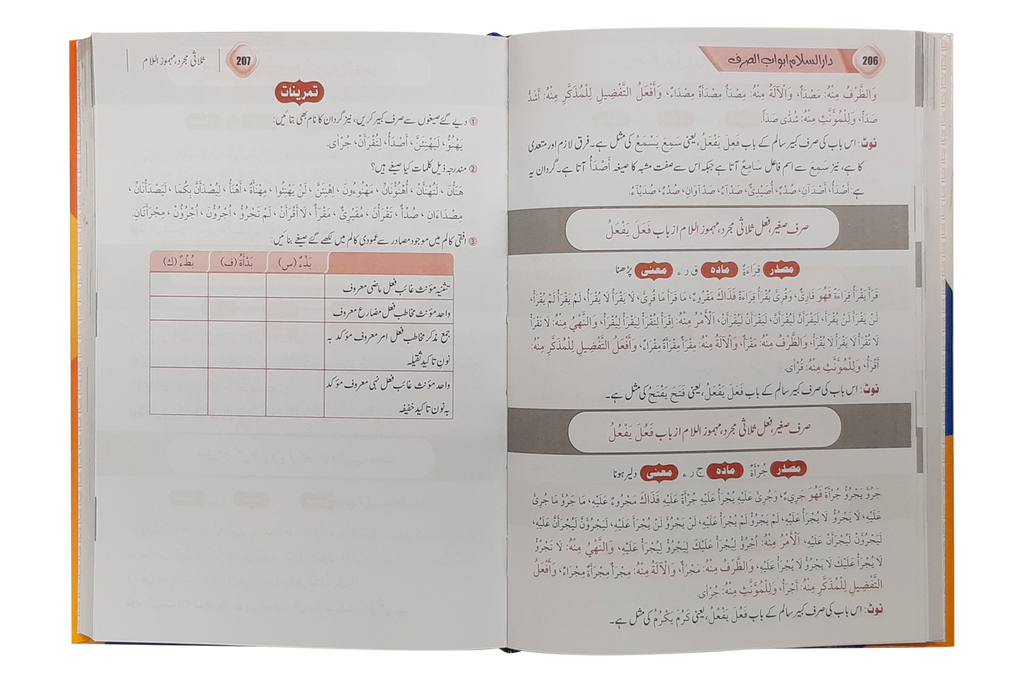 206
دارالسلام ابواب الصرف
وَالظَّرْفُ مِنْهُ: مَصْدَأٌ، وَالْآلَةُ مِنْهُ: مِصْدَأٌ مِصْدَأَةٌ مِصْدَاءٌ، وَأَفْعَلُ التَّفْضِيلِ لِلْمُذَكَّرِ مِنْهُ: أَصْدَأُ
صَدَأَ، وَلِلْمُؤَنَّثِ مِنْهُ: صُدْئٰى صَدَأَ.
نوٹ: اس باب کی صرف کبیر سالم کے باب فَعِلَ يَفْعَلُ، یعنی سَمِعَ يَسْمَعُ کی مثل ہے۔ فرق لازم اور متعدی
کا ہے، نیز سَمِعَ سے اسم فاعل سَامِعٌ آتا ہے جبکہ اس سے صفت مشبہ کا صیغہ أَصْدَأُ آتا ہے۔ گردان یہ
ہے: أَصْدَأُ، أَصْدَآنِ، صُدْءٌ، أُصَيْدِئٌ، صَدْآءُ، صَدْآوَانِ، صُدْءٌ، صُدَيْآءُ.
صرف صغیر، فعل ثلاثی مجرد، مہموز اللام از باب فَعَلَ يَفْعَلُ
مصدر قِرَاءَةٌ مادہ ق ر ء معنی پڑھنا
قَرَأَ يَقْرَأُ قِرَاءَةً فَهُوَ قَارِئٌ، وَقُرِئَ يُقْرَأُ قِرَاءَةً فَذَاكَ مَقْرُوءٌ، مَا قَرَأَ مَا قُرِئَ، لَا يَقْرَأُ لَا يُقْرَأُ، لَمْ يَقْرَأْ لَمْ يُقْرَأْ،
لَنْ يَقْرَأَ لَنْ يُقْرَأَ، لَيَقْرَأَنَّ لَيُقْرَأَنَّ، لَيَقْرَأَنْ لَيُقْرَأَنْ، اَلْأَمْرُ مِنْهُ: اِقْرَأْ لِتُقْرَأْ لِيَقْرَأْ لِيُقْرَأْ، وَالنَّهْيُ مِنْهُ: لَا تَقْرَأْ
لَا تُقْرَأْ لَا يَقْرَأْ لَا يُقْرَأْ، وَالظَّرْفُ مِنْهُ: مَقْرَأٌ، وَالْآلَةُ مِنْهُ: مِقْرَأٌ مِقْرَأَةٌ مِقْرَاءٌ، وَأَفْعَلُ التَّفْضِيلِ لِلْمُذَكَّرِ مِنْهُ:
أَقْرَأُ، وَلِلْمُؤَنَّثِ مِنْهُ: قُرْأٰى.
نوٹ: اس باب کی صرف کبیر سالم کے باب فَعَلَ يَفْعَلُ، یعنی فَتَحَ يَفْتَحُ کی مثل ہے۔
صرف صغیر، فعل ثلاثی مجرد، مہموز اللام از باب فَعُلَ يَفْعُلُ
مصدر جُرْأَةٌ مادہ ج ر ء معنی دلیر ہونا
جَرُؤَ يَجْرُؤُ جُرْأَةً فَهُوَ جَرِيءٌ، وَجُرِئَ عَلَيْهِ يُجْرَأُ عَلَيْهِ جُرْأَةً عَلَيْهِ فَذَاكَ مَجْرُوءٌ عَلَيْهِ، مَا جَرُؤَ مَا جُرِئَ
عَلَيْهِ، لَا يَجْرُؤُ لَا يُجْرَأُ عَلَيْهِ، لَمْ يَجْرُؤْ لَمْ يُجْرَأْ عَلَيْهِ، لَنْ يَجْرُؤَ لَنْ يُجْرَأَ عَلَيْهِ، لَيَجْرُؤَنَّ لَيُجْرَأَنَّ عَلَيْهِ،
لَيَجْرُؤَنْ لَيُجْرَأَنْ عَلَيْهِ، اَلْأَمْرُ مِنْهُ: اُجْرُؤْ لِيُجْرَأْ عَلَيْكَ لِيَجْرُؤْ لِيُجْرَأْ عَلَيْهِ، وَالنَّهْيُ مِنْهُ: لَا تَجْرُؤْ
لَا يُجْرَأْ عَلَيْكَ لَا يَجْرُؤْ لَا يُجْرَأْ عَلَيْهِ، وَالظَّرْفُ مِنْهُ: مَجْرَأٌ، وَالْآلَةُ مِنْهُ: مِجْرَأٌ مِجْرَأَةٌ مِجْرَاءٌ، وَأَفْعَلُ
التَّفْضِيلِ لِلْمُذَكَّرِ مِنْهُ: أَجْرَأُ، وَلِلْمُؤَنَّثِ مِنْهُ: جُرْأٰى.
نوٹ: اس باب کی صرف کبیر سالم کے باب فَعُلَ يَفْعُلُ، یعنی كَرُمَ يَكْرُمُ کی مثل ہے۔
207
ثلاثی مجرد، مہموز اللام
تمرینات
① دیے گئے صیغوں سے صرف کبیر کریں، نیز گردان کا نام بھی بتائیں:
يَهْنُؤُ، لَيَهْنِئَنَّ، أَصْدَأُ، لِتُقْرَأْنَ، جُرْأٰى.
② مندرجہ ذیل کلمات کیا صیغے ہیں؟
③ افقی کالم میں موجود مصادر سے عمودی کالم میں لکھے گئے صیغے بنائیں:
بَدْءٌ (س) بَدْأَةٌ (ف) بُطْءٌ (ك)
تثنیہ مؤنث غائب فعل ماضی معروف
واحد مؤنث مخاطب فعل مضارع معروف
جمع مذکر مخاطب فعل امر معروف مؤکد بہ
نون تاکید ثقیلہ
واحد مؤنث غائب فعل نہی معروف مؤکد
بہ نون تاکید خفیفہ